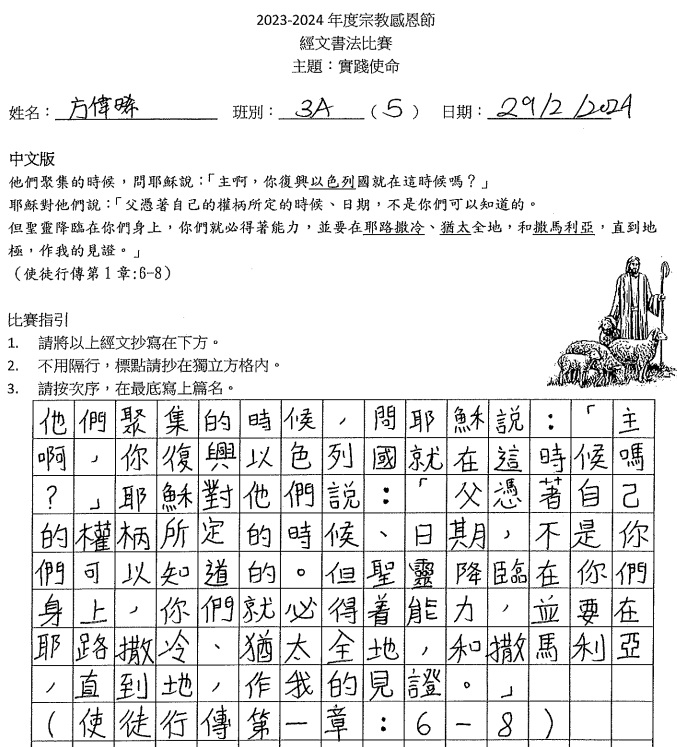 2023-2024 年度宗教感恩節
經文書法比賽
主題：實踐使命
姓名：方偉晞 班別：3A（5） 日期：29/2/2024
中文版
他們聚集的時候，問耶穌說：「主啊，你復興以色列國就在這時候嗎？」
耶穌對他們說：「父憑著自己的權柄所定的時候、日期，不是你們可以知道的。
但聖靈降臨在你們身上，你們就必得著能力，並要在耶路撒冷、猶太全地，和撒馬利亞，直到地
極，作我的見證。」
（使徒行傳第 1 章:6-8）
比賽指引
1. 請將以上經文抄寫在下方。
2. 不用隔行，標點請抄在獨立方格內。
3. 請按次序，在最底寫上篇名。
他們聚集的時候，問耶穌說：「主
啊，你復興以色列國就在這時候嗎
？」耶穌對他們說：「父憑著自己
的權柄所定的時候、日期，不是你
們可以知道的。但聖靈降臨在你們
身上，你們就必得着能力，並要在
耶路撒冷、猶太全地，和撒馬利亞
，直到地，作我的見證。」
（使徒行傳第一章：6-8）